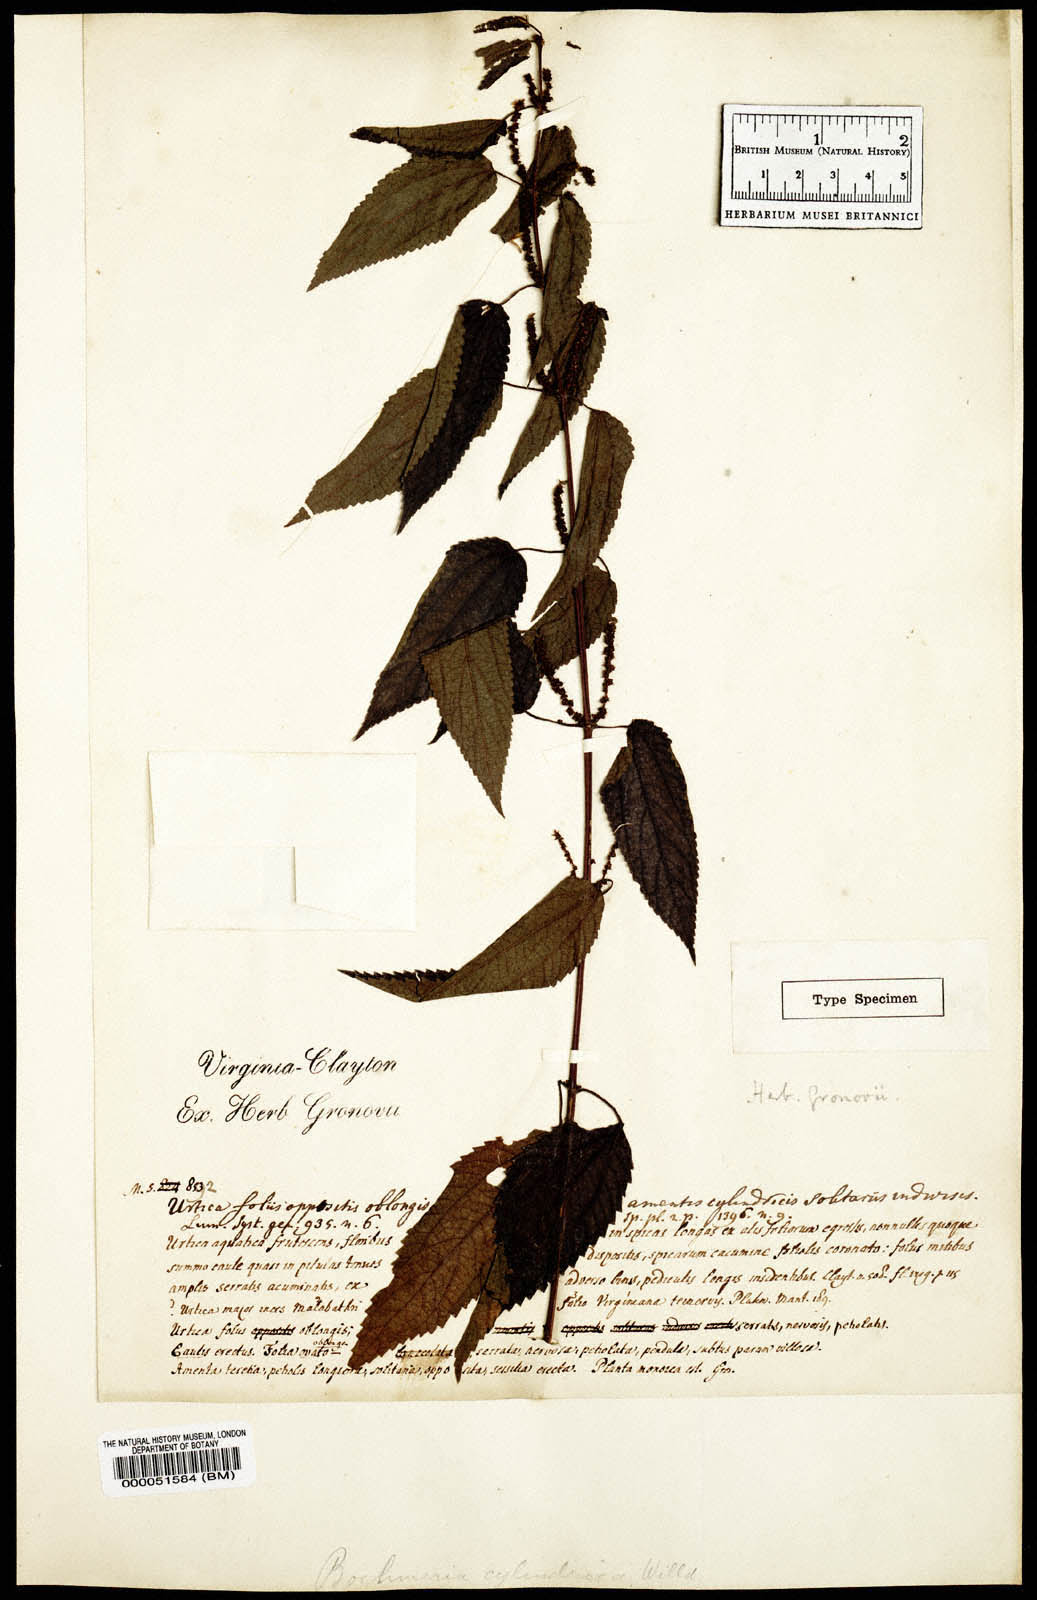 1 2
British Museum (Natural History)
1 2 3 4 5
HERBARIUM MUSEI BRITANNICI
Type Specimen
Virginia-Clayton
Ex. Herb Gronovii
Herb. Gronovii.
Urtica foliis oppositis oblongis amentis cylindricis solitariis indivisis.
Syst. 935. n. 6. Sp. pl. 2 p. 1396. n. 9.
Urtica aquatica frutescens, floribus in spicas longas ex alis foliorum egressis, nonnullis quoque
summo caule quasi in pilulas dispositis, spicarum cacumine foliolis coronato: foliis mitibus
amplis serratis acuminatis, ex adverso binis, pediculis longis insidentibus. Clayt. n.
? Urtica major iners folio Virginiana trinervis. Plukn. Mant.
Urtica foliis oppositis oblongis, serratis, nervosis, petiolatis.
Caulis erectus. Folia serrata, nervosa, petiolata, subtus parum villosa.
Amenta petiolis longiora, solitaria, opposita, sessilia erecta. Planta monoica est. Gro.
THE NATURAL HISTORY MUSEUM, LONDON
DEPARTMENT OF BOTANY
000051584 (BM)
Boehmeria cylindrica Willd